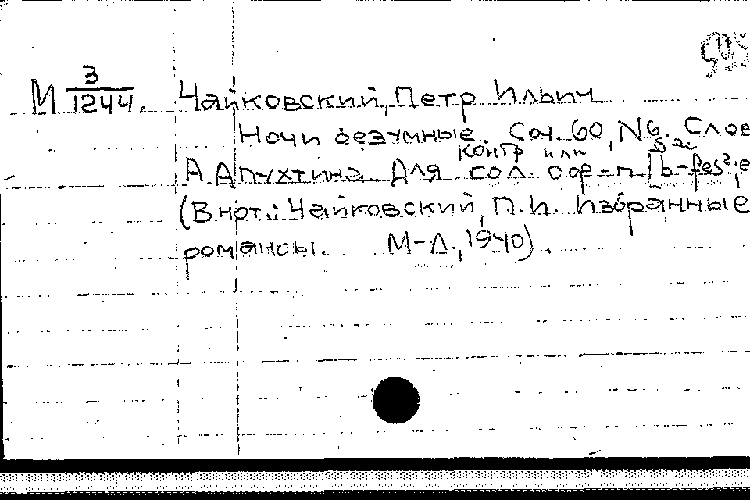 И 3/1244. Чайковский, Петр Ильич
Ночи безумные. Соч. 60, N6. Слов
контр или
А. Апухтина. Для сол. с ф-п. [b-fes²; e
(В нот.: Чайковский, П.И. Избранные
романсы. М-Л., 1940).